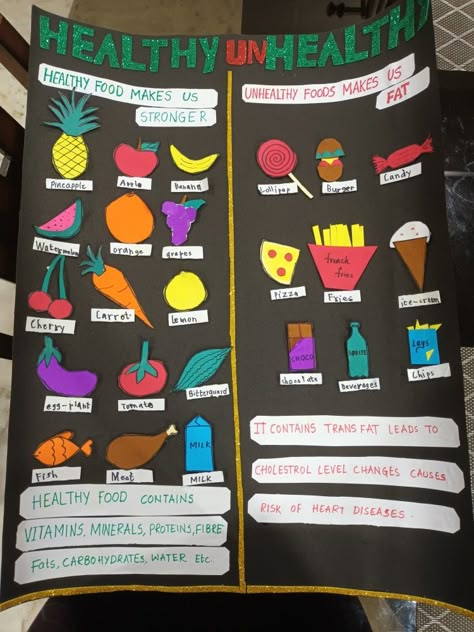 HEALTHY UNHEALTHY
HEALTHY FOOD MAKES US
STRONGER
UNHEALTHY FOODS MAKES US
FAT
Pineapple
Apple
Banana
Lollipop
Burger
Candy
Watermelon
orange
grapes
french
fries
Pizza
Fries
ice-cream
Cherry
Carrot
Lemon
CHOCO
SPRITE
Lays
chocolate
beverages
Chips
egg-plant
Tomato
Bittergourd
MILK
Fish
Meat
MILK
IT CONTAINS TRANS FAT LEADS TO
CHOLESTROL LEVEL CHANGES CAUSES
RISK OF HEART DISEASES.
HEALTHY FOOD CONTAINS
VITAMINS, MINERALS, PROTEINS, FIBRE
Fats, CARBOHYDRATES, WATER Etc..